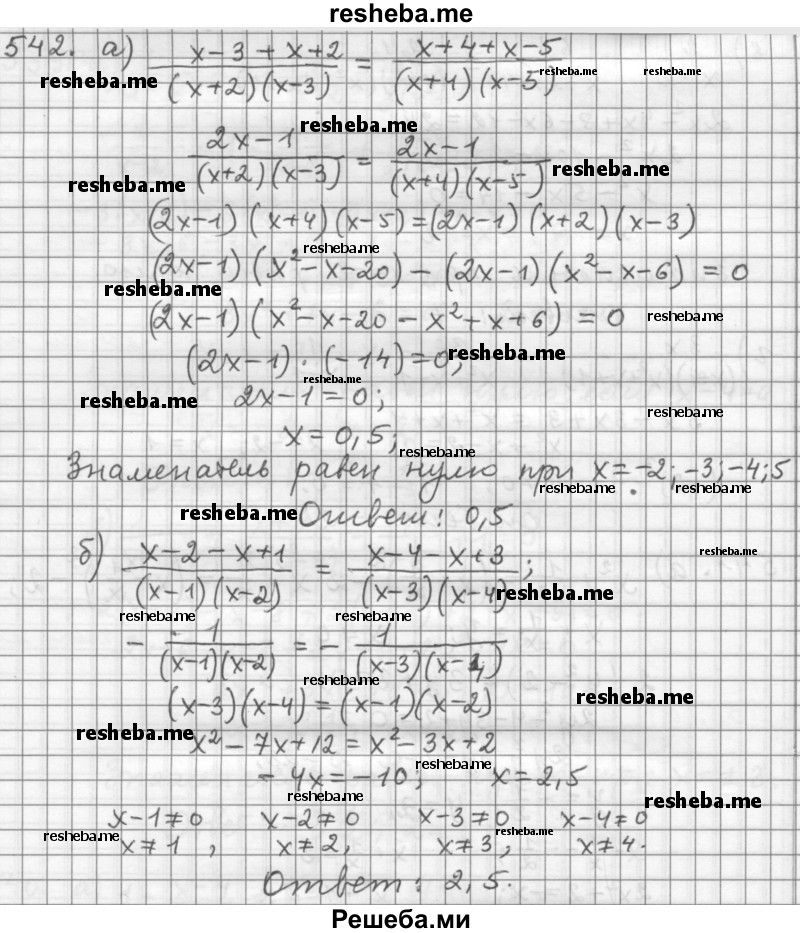 resheba.me
542. а) (x-3+x+2)/((x+2)(x-3)) = (x+4+x-5)/((x+4)(x-5))
resheba.me resheba.me resheba.me
resheba.me
(2x-1)/((x+2)(x-3)) = (2x-1)/((x+4)(x-5))
resheba.me resheba.me
(2x-1)(x+4)(x-5)=(2x-1)(x+2)(x-3)
resheba.me
(2x-1)(x²-x-20)-(2x-1)(x²-x-6)=0
resheba.me
(2x-1)(x²-x-20-x²+x+6)=0
resheba.me
(2x-1)·(-14)=0;
resheba.me
resheba.me
2x-1=0;
resheba.me resheba.me
x=0,5;
resheba.me
Знаменатель равен нулю при x=-2;-3;-4;5
resheba.me resheba.me
resheba.me
Ответ: 0,5
б) (x-2-x+1)/((x-1)(x-2)) = (x-4-x+3)/((x-3)(x-4));
resheba.me
resheba.me
resheba.me resheba.me
- 1/((x-1)(x-2)) = - 1/((x-3)(x-4))
resheba.me
resheba.me
(x-3)(x-4)=(x-1)(x-2)
resheba.me
x²-7x+12=x²-3x+2
resheba.me
-4x=-10; x=2,5
resheba.me
resheba.me
x-1≠0 x-2≠0 x-3≠0 x-4≠0
resheba.me resheba.me
x≠1, x≠2, x≠3, x≠4.
Ответ: 2,5.
Решеба.ми